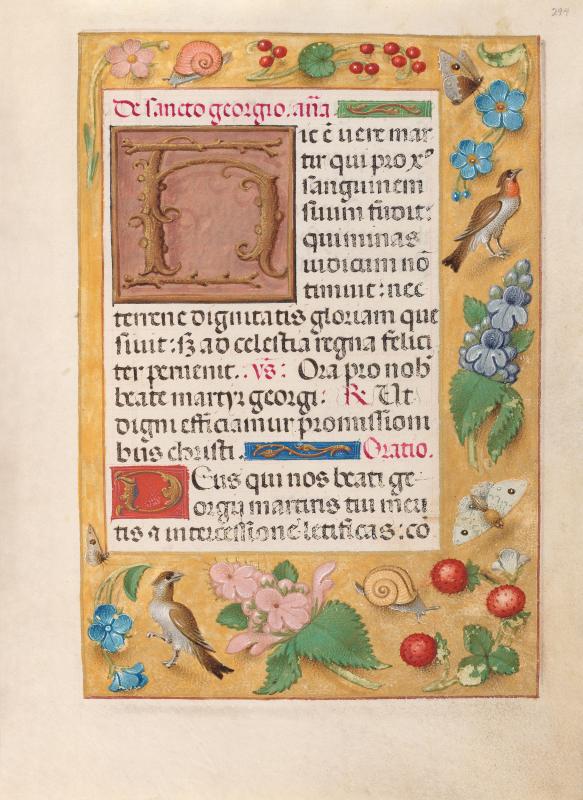 294
De sancto georgio. an̄a
Hic ē vere mar
tir qui pro xº
sanguinem
suum fudit:
qui minas
iudicum nō
timuit: nec
terrene dignitatis gloriam que
siuit: sꝫ ad celestia regna felici
ter peruenit. v̄s: Ora pro nob̄
beate martyr georgi: R Ut
digni efficiamur promissioni
bus christi. Oratio.
Deus qui nos beati ge
orgii martiris tui meri
tis ⁊ intercessione letificas: cō